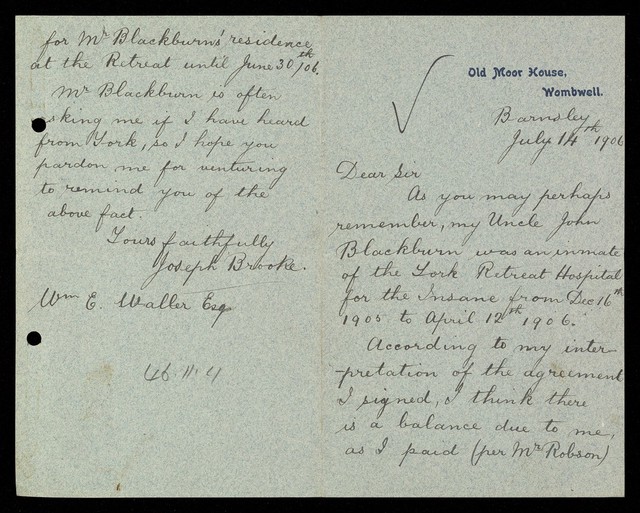 Old Moor House,
Wombwell.
Barnsley
July 14th 1906
Dear Sir
As you may perhaps
remember, my Uncle John
Blackburn was an inmate
of the York Retreat Hospital
for the Insane from Dec 16th
1905 to April 12th 1906.
According to my inter-
-pretation of the agreement
I signed, I think there
is a balance due to me,
as I paid (per Mr Robson)
for Mr Blackburn's residence
at the Retreat until June 30th/06.
Mr Blackburn is often
asking me if I have heard
from York, so I hope you
pardon me for venturing
to remind you of the
above fact.
Yours faithfully
Joseph Brooke.
Wm E. Waller Esq
46.11.4